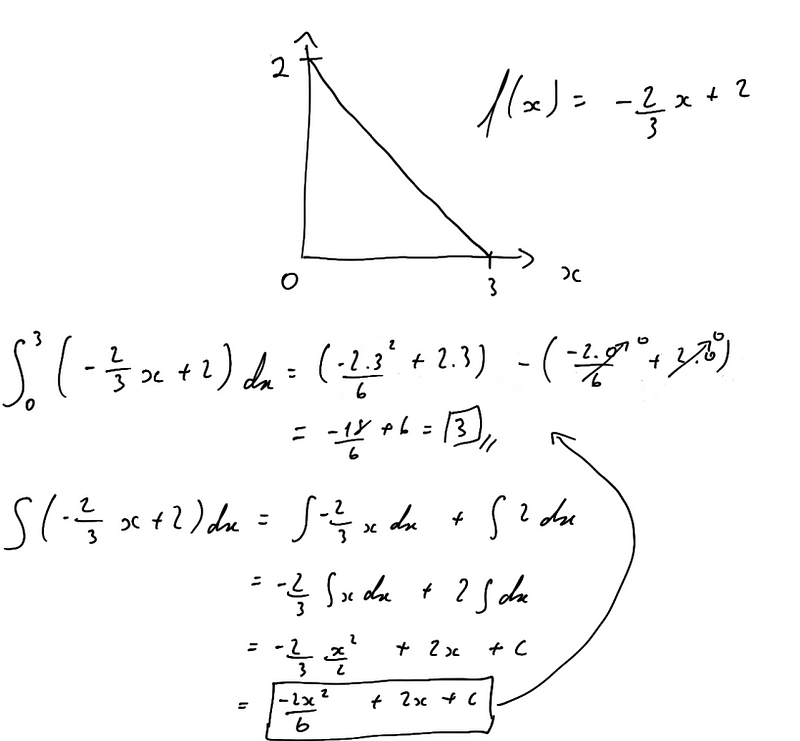 2
f(x) = -2/3 x + 2
0
3
x
∫₀³ (-2/3 x + 2) dx = (-2.3²/6 + 2.3) - (-2.0/6 ↗0 + 2.0 ↗0)
= -18/6 + 6 = 3 //
∫(-2/3 x + 2) dx = ∫-2/3 x dx + ∫ 2 dx
= -2/3 ∫x dx + 2∫dx
= -2/3 x²/2 + 2x + C
= -2x²/6 + 2x + C